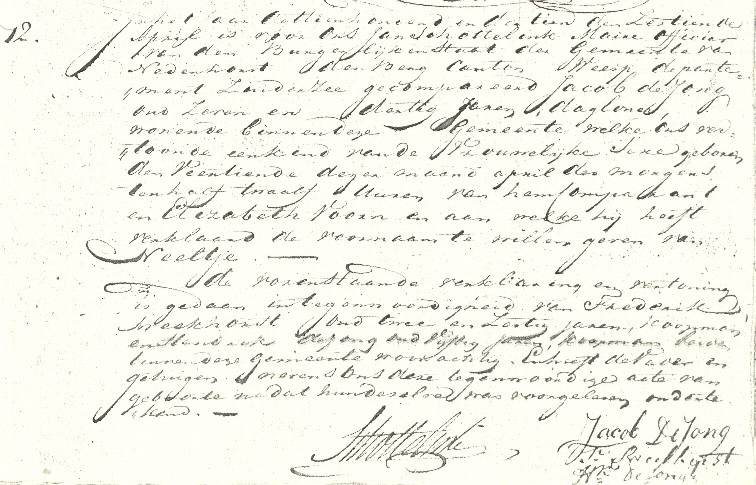 12.
In het Jaar achttienhonderd en dertien den Zestiende
April is voor ons Jan Schottelink Maire officier
van den Burgerlijken staat der Gemeente van
Nederhorst den Berg Canton Weesp departe-
ment Zuiderzee gecompareerd Jacob de Jong
oud Zeven en dertig Jaren, daglooner,
wonende binnen deze Gemeente welke ons ver-
toonde een kind van de Vrouwelijke Sexe geboren
den Veertiende dezer maand april des morgens
ten half twaalf Uuren van hem Comparant
en Elizabeth Voorn en aan welke hij heeft
verklaard de voornaam te willen geven van
Neeltje. —
de vorenstaande verklaring en vertoning
is gedaan in tegenwoordigheid van Frederik
oud twee en Zestig jaren, koopman,
de jong oud Vijftig jaren, koopman, beide
binnen deze gemeente woonachtig Enheeft de Vader en
getuigen nevens ons deze tegenwoordige acte van
geboorte na dat hun dezelve was voorgelezen onderte-
kend. —
Jacob De Jong
De Jong